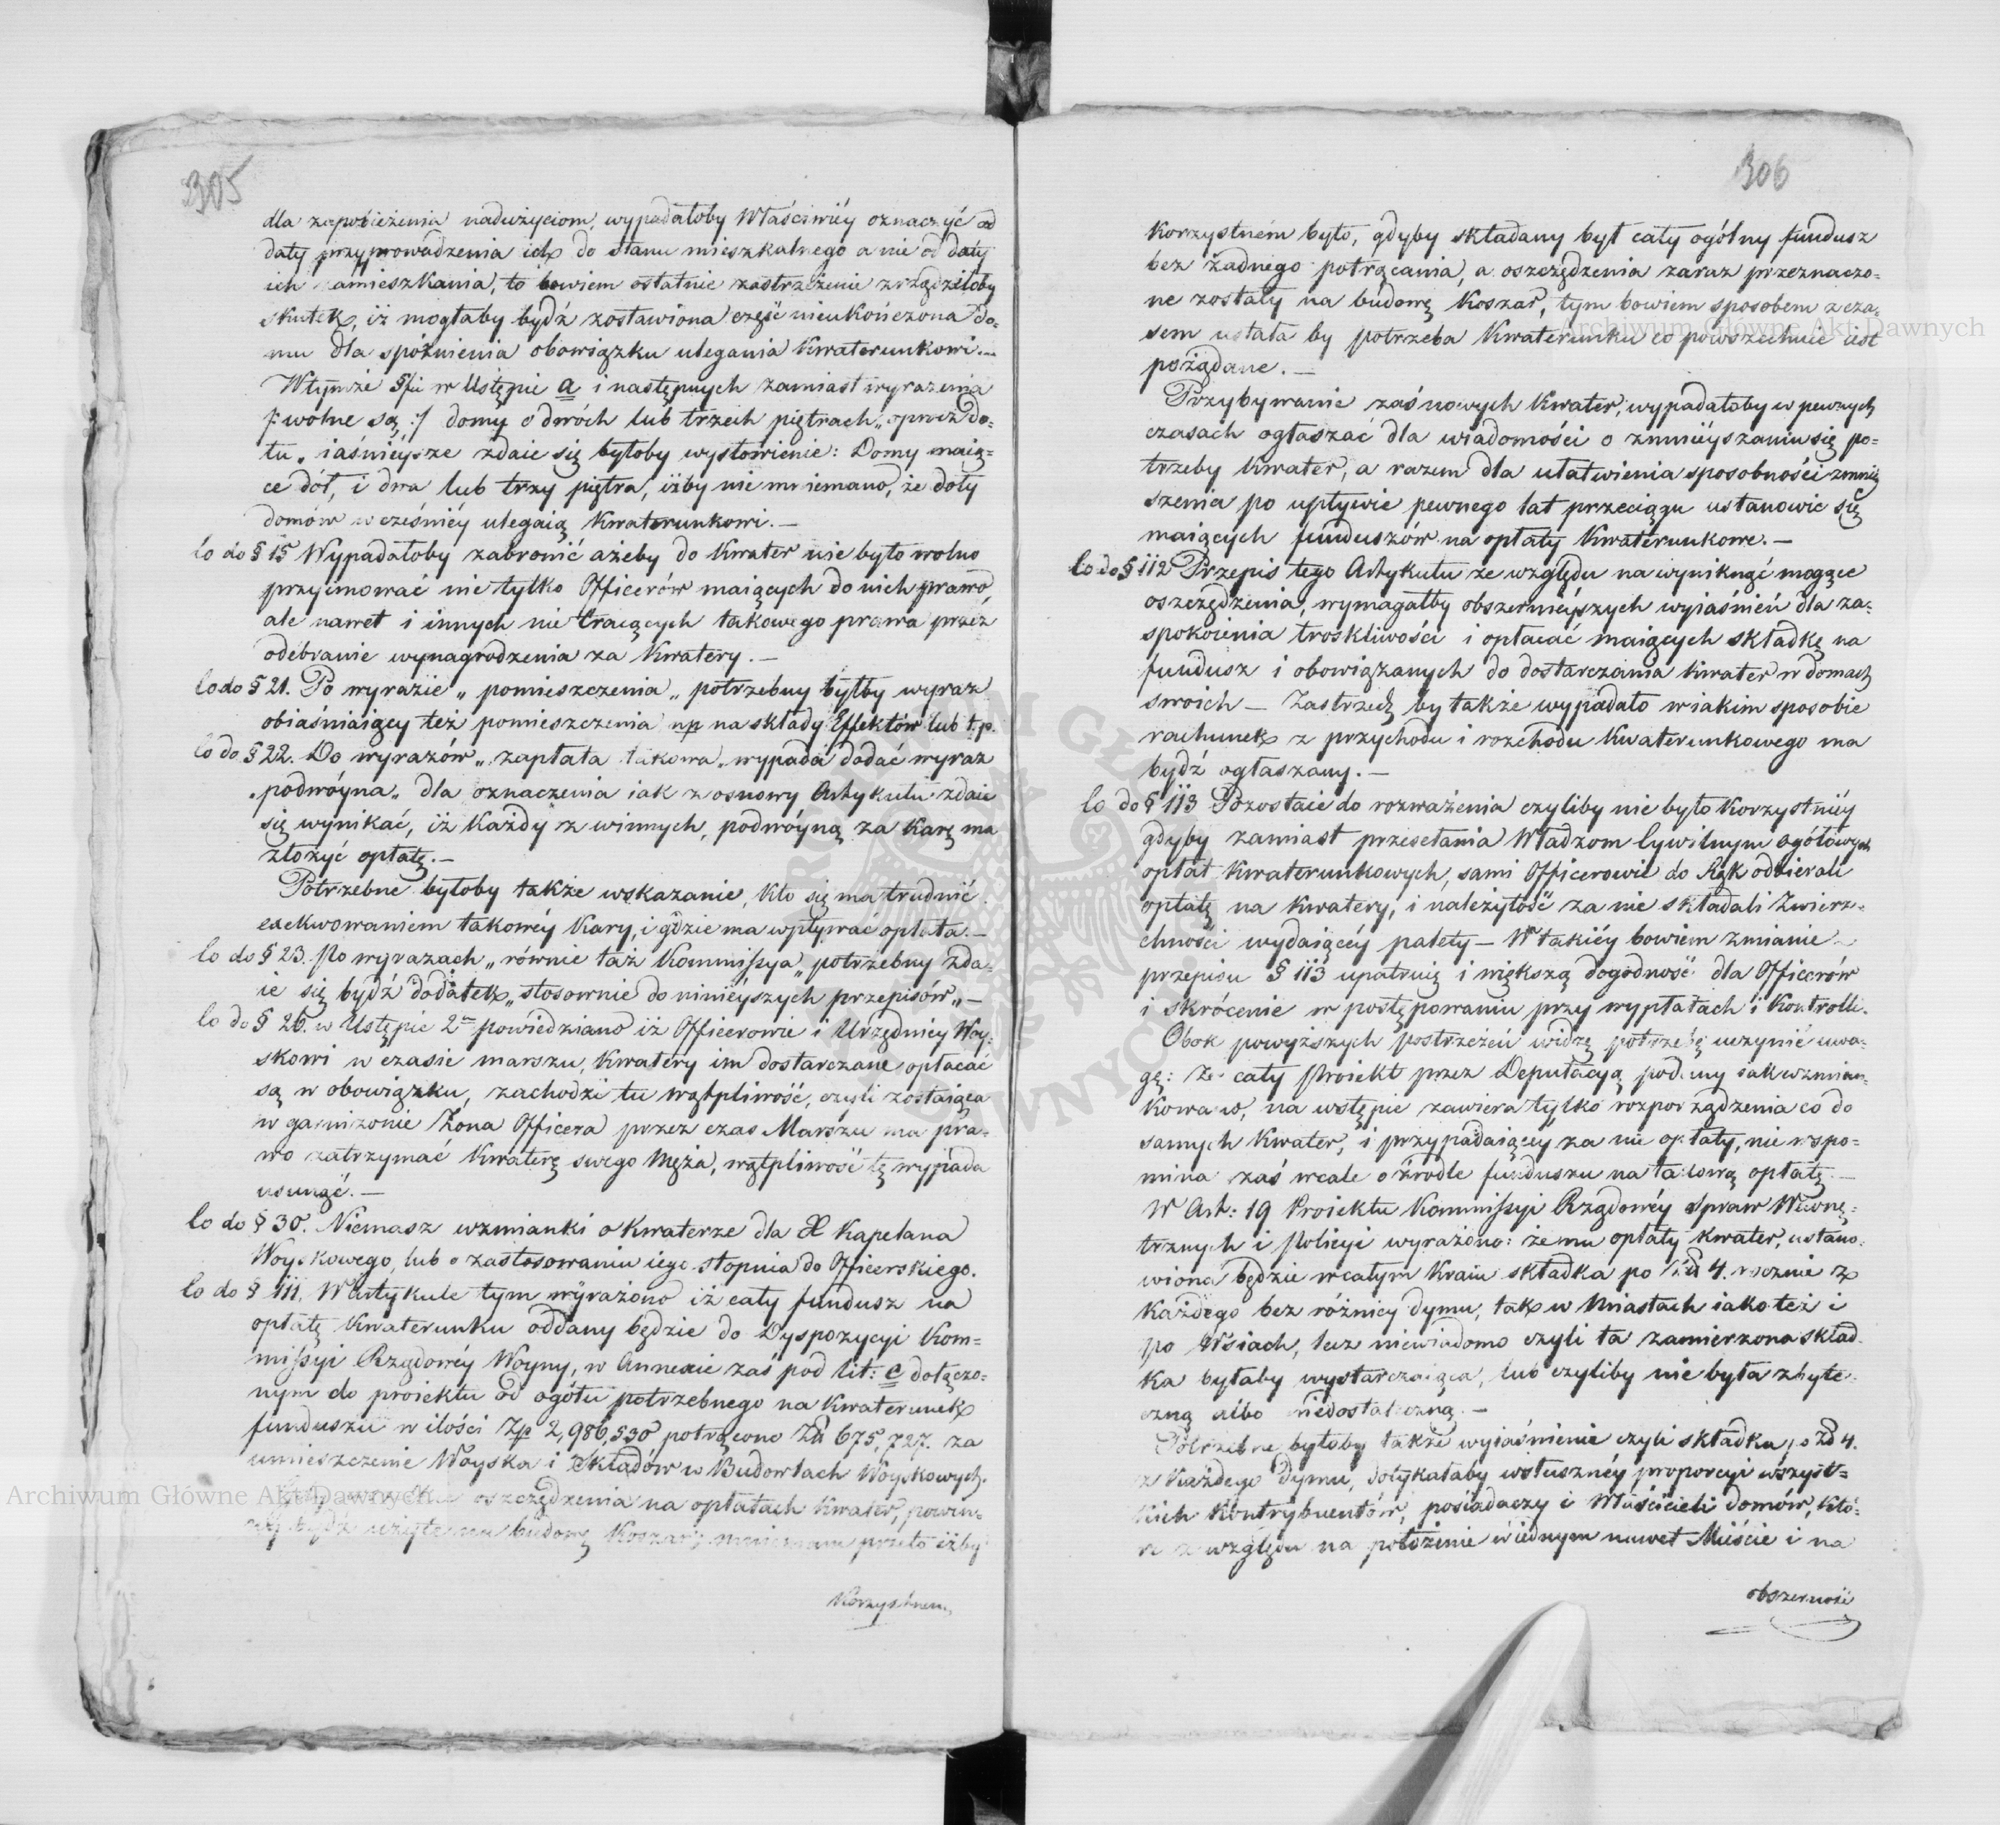 305
dla zapobieżenia nadużyciom, wypadałoby właściwiéy oznaczyć od
daty przyprowadzenia ich do stanu mieszkalnego a nie od daty
ich zamieszkania, to bowiem ostatnie zastrzeżenie zrządziłoby
skutek, iż mogłaby bydź zostawiona część nieukończona do-
mu dla spóźnienia obowiązku ulegania Kwaterunkowi.—
W tymże §fie w Ustępie a i następnych zamiast wyrażenia
/: wolne są :/ domy o dwóch lub trzech piętrach „oprócz do-
łu„ iaśnieysze zdaie się byłoby wysłowienie: Domy maią-
ce dół, i dwa lub trzy piętra, iżby nie mniemano, że doły
domów wcześniéy ulegaią Kwaterunkowi.—
Co do § 15 Wypadałoby zabronić ażeby do Kwater nie było wolno
przyimować nie tylko Officerów maiących do nich prawo,
ale nawet i innych nie tracących takowego prawa przez
odebranie wynagrodzenia za Kwatery.—
Co do § 21. Po wyrazie „ pomieszczenia „ potrzebny byłby wyraz
obiaśniaiący też pomieszczenia np na składy Effektów lub t.p.
Co do § 22. Do wyrazów „ zapłata takowa „ wypada dodać wyraz
„podwóyna„ dla oznaczenia iak z osnowy Artykułu zdaie
się wynikać, iż Każdy z winnych, podwóyną za Karę ma
złożyć opłatę.—
Potrzebne byłoby także wskazanie, Kto się ma trudnić
exekwowaniem takowéy Kary, i gdzie ma wpływać opłata.—
Co do § 23. Po wyrazach „ równie taż Kommissya „ potrzebny zda-
ie się bydź dodatek „stosownie do ninieyszych przepisów„—
Co do § 26. w Ustępie 2m powiedziano iż Officerowie i Urzędnicy Woy-
skowi w czasie marszu, Kwatery im dostarczane opłacać
są w obowiązku, zachodzi tu wątpliwość, czyli zostaiąca
w garnizonie Żona Officera przez czas Marszu ma pra-
wo zatrzymać Kwaterę swego Męża, wątpliwość tę wypada
usunąć.—
Co do § 30. Niemasz wzmianki o Kwaterze dla X Kapelana
Woyskowego, lub o zastosowaniu iego stopnia do Officerskiego.
Co do § 111. W Artykule tym wyrażono iż cały fundusz na
opłatę Kwaterunku oddany będzie do Dyspozycyi Kom-
missyi Rządowéy Woyny, w Annexie zaś pod lit: C dołączo-
nym do proiektu od ogółu potrzebnego na Kwaterunek
funduszu w ilości Zp 2,986,530 potrącono Zł 675,727. za
umieszczenie Woyska i Składów w Budowlach Woyskowych.
oszczędzenia na opłatach Kwater, powin-
ny bydź użyte na budowę Koszar; mniemam przeto iżby
Korzystnem,
306
Korzystném było, gdyby składany był cały ogólny fundusz
bez żadnego potrącania, a oszczędzenia zaraz przeznaczo-
ne zostały na budowę Koszar, tym bowiem sposobem z cza-
sem ustała by potrzeba Kwaterunku co powszechnie iest
pożądane.—
Przybywanie zaś nowych Kwater, wypadałoby w pewnych
czasach ogłaszać dla wiadomości o zmnieyszaniu się po-
trzeby Kwater, a razem dla ułatwienia sposobności zmniey
szenia po upływie pewnego lat przeciągu ustanowić się
maiących funduszów na opłaty Kwaterunkowe.—
Co do § 112 Przepis tego Artykułu ze względu na wyniknąć mogące
oszczędzenia, wymagałby obszernieyszych wyiaśnień dla za-
spokoienia troskliwości i opłacać maiących składkę na
fundusz i obowiązanych do dostarczania Kwater w domach
swoich — Zastrzedz by także wypadało w iakim sposobie
rachunek z przychodu i rozchodu Kwaterunkowego ma
bydź ogłaszany.—
Co do § 113 Pozostaie do rozważenia czyliby nie było Korzystniéy
gdyby zamiast przesełania Władzom Cywilnym ogółowych
opłat Kwaterunkowych, sami Officerowie do Rąk odbierali
opłatę na Kwatery, i należytość za nie składali Zwierz-
chności wydaiącéy palety — W takiéy bowiem zmianie
przepisu § 113 upatruię i większą dogodność dla Officerów
i skrócenie w postępowaniu przy wypłatach i Kontrolli.
Obok powyższych postrzeżeń widzę potrzebę uczynić uwa-
gę: Że cały Proiekt przez Deputacyą podany iak wzmian-
Kowano, na wstępie zawiera tylko rozporządzenia co do
samych Kwater, i przypadaiącey za nie opłaty, nie wspo-
mina zaś wcale o źrodle funduszu na takową opłatę.—
W Art: 19 Proiektu Kommissyi Rządowéy Spraw Wewnę-
trznych i Policyi wyrażono: że na opłaty Kwater, ustano-
wiona będzie w całym Kraiu składka po Zł 4. rocznie z
Każdego bez różnicy dymu, tak w Miastach iako też i
po Wsiach, lecz niewiadomo czyli ta zamierzona skład-
ka byłaby wystarczaiąca, lub czyliby nie była zbyte-
czną albo niedostateczną.—
Potrzebne byłoby także wyiaśnienie czyli składka po Zł 4.
z Każdego Dymu, dotykałaby w słusznéy proporcyi wszyst-
kich Kontrybuentów, posiadaczy i Właścicieli domów, Któ-
rzy z względu na położenie w iednym nawet Mieście i na
obszerność
Archiwum Główne Akt Dawnych
Archiwum Główne Akt Dawnych